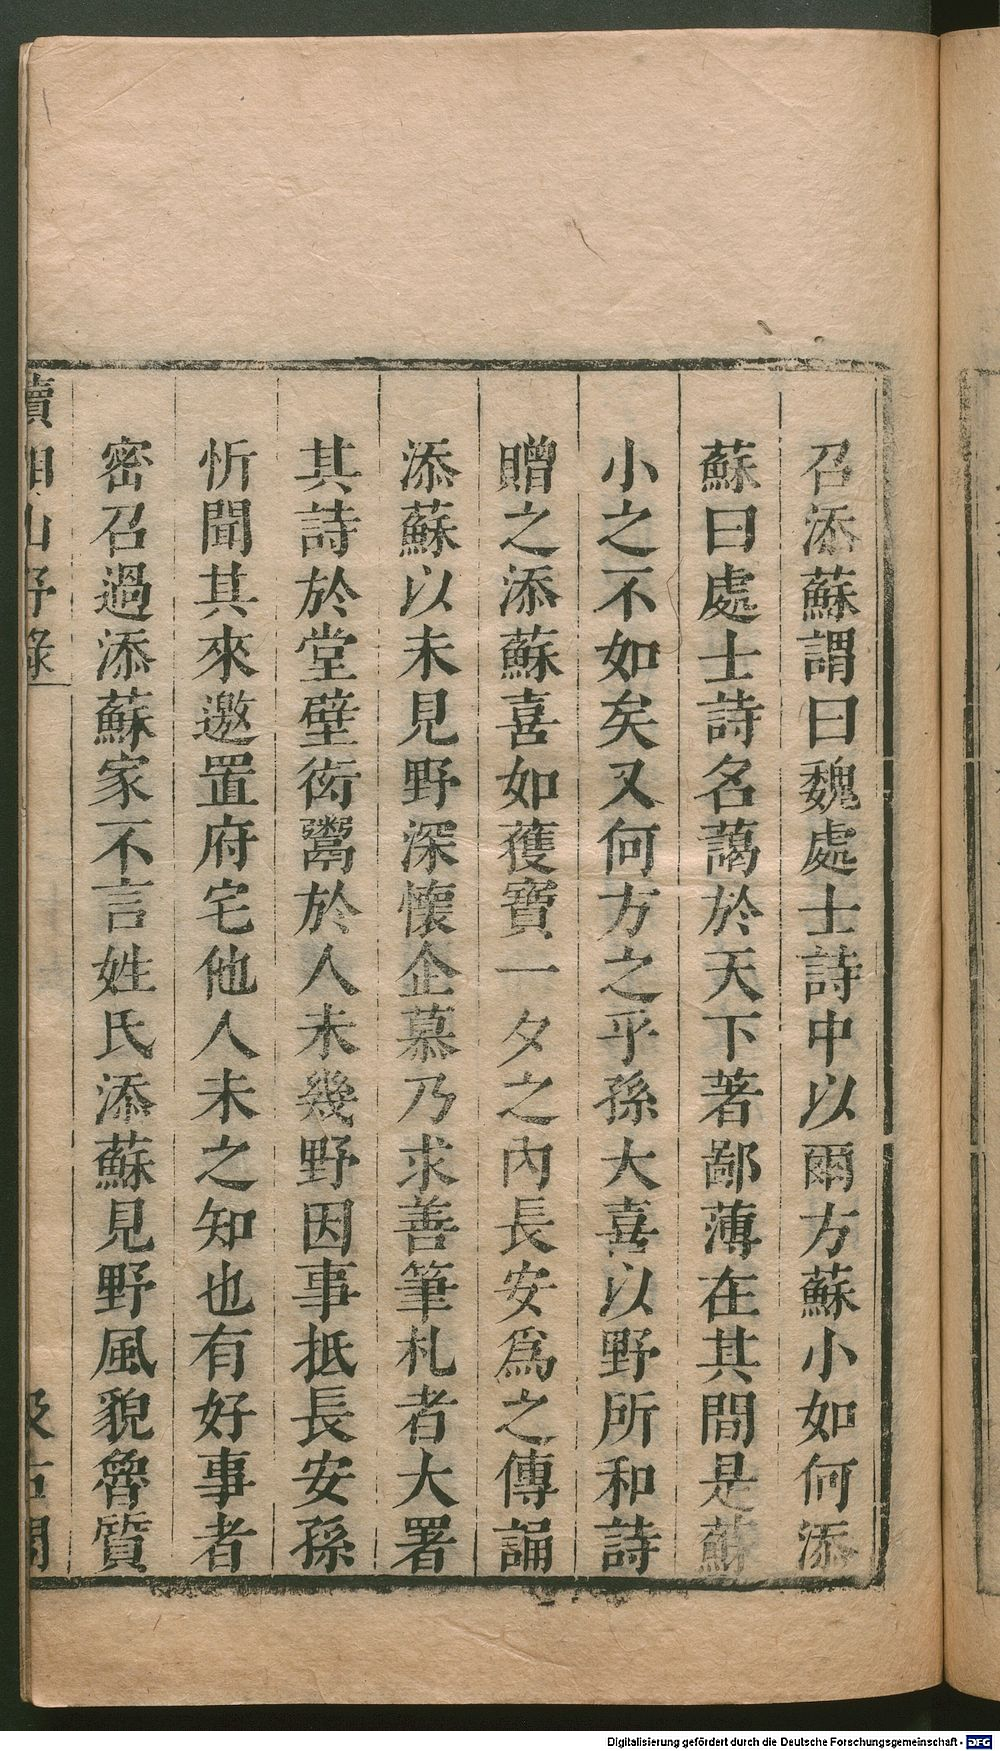 召添蘇謂曰魏處士詩中以爾方蘇小如何添
蘇曰處士詩名藹於天下著鄙薄在其間是蘇
小之不如矣又何方之乎孫大喜以野所和詩
贈之添蘇喜如獲寶一夕之內長安爲之傳誦
添蘇以未見野深懷企慕乃求善筆札者大署
其詩於堂壁衒鬻於人未幾野因事抵長安孫
忻聞其來邀置府宅他人未之知也有好事者
密召過添蘇家不言姓氏添蘇見野風貌魯質
續湘山野錄
汲古閣
Digitalisierung gefördert durch die Deutsche Forschungsgemeinschaft - DFG